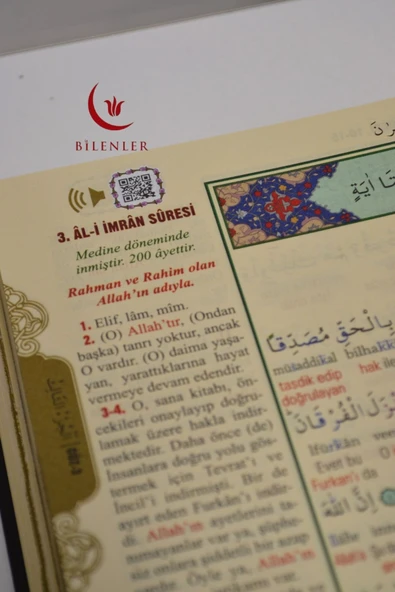 BİLENLER
3. ÂL-İ İMRÂN SÛRESİ
Medine döneminde
inmiştir. 200 âyettir.
Rahman ve Rahim olan
Allah'ın adıyla.
1. Elif, lâm, mîm.
2. (O) Allah'tır, (Ondan
başka) tanrı yoktur, ancak
O vardır. (O) daima yaşa-
yan, yarattıklarına hayat
vermeye devam edendir.
3-4. O, sana kitabı, ön-
cekileri onaylayıp doğru-
lamak üzere hakla indir-
mektedir. Daha önce (de)
İnsanlara doğru yolu gös-
termek için Tevrat'ı ve
İncil'i indirmişti. Bir de
ayırt eden Furkan'ı indir-
di. Allah'ın ayetlerini ta-
nımayanlar var ya, şüphe-
siz onlara şiddetli bir azap
vardır. Öyle ya, Allah'ın
بِالْحَقِّ مُصَدِّقًا
müsaddikal bilhakk
tasdik edip hak ile
doğrulayan
Evet bu
Furkan'ı da
اِنَّ اللّٰهَ